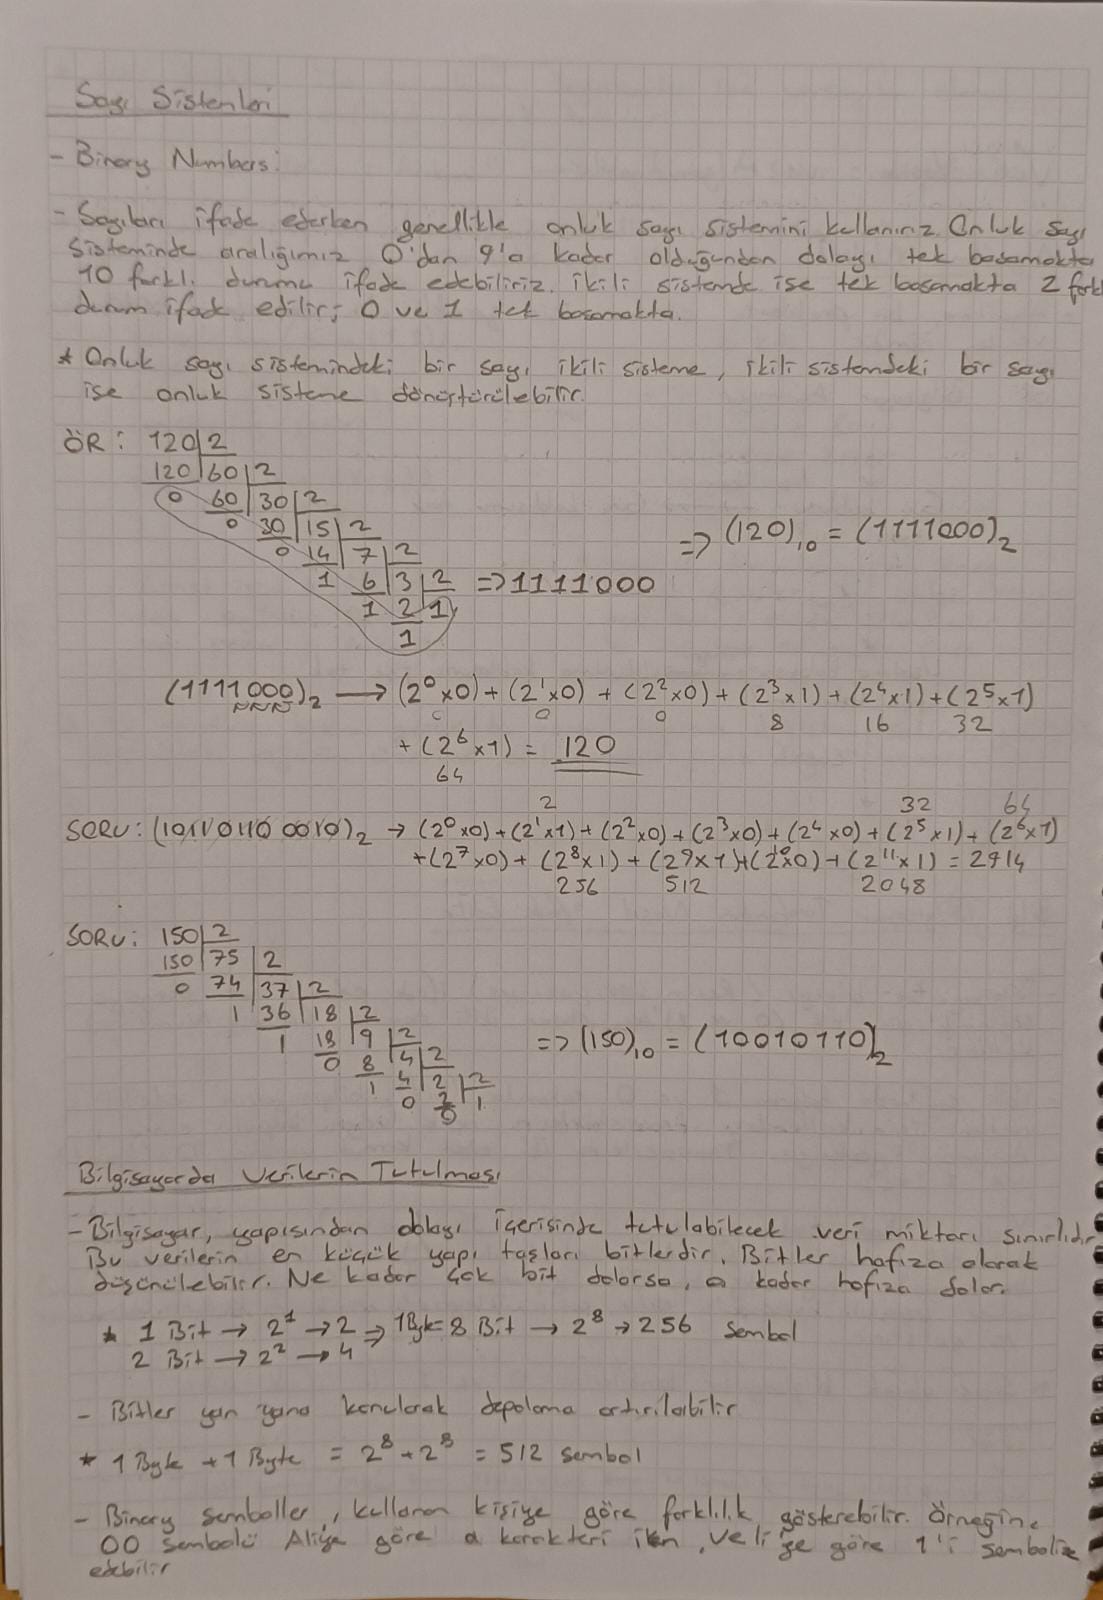 Sayı Sistemleri
- Binary Numbers:
- Sayıları ifade ederken genellikle onluk sayı sistemini kullanırız. Onluk sayı
sisteminde aralığımız 0'dan 9'a kadar olduğundan dolayı tek basamakta
10 farklı durumu ifade edebiliriz. İkili sistemde ise tek basamakta 2 farkl
durum ifade edilir; 0 ve 1 tek basamakta.
* Onluk sayı sistemindeki bir sayı ikili sisteme, ikili sistemdeki bir sayı
ise onluk sisteme dönüştürülebilir.
ÖR: 120 2
120 60 2
0 60 30 2
0 30 15 2
0 14 7 2
1 6 3 2 => 1111000
1 2 1
1
=> (120)₁₀ = (1111000)₂
(1111000)₂ → (2⁰x0) + (2¹x0) + (2²x0) + (2³x1) + (2⁴x1) + (2⁵x1)
0 0 0 8 16 32
+ (2⁶x1) = 120
64
2 32 64
SORU: (101101100010)₂ → (2⁰x0) + (2¹x1) + (2²x0) + (2³x0) + (2⁴x0) + (2⁵x1) + (2⁶x1)
+ (2⁷x0) + (2⁸x1) + (2⁹x1) + (2¹⁰x0) + (2¹¹x1) = 2914
256 512 2048
SORU: 150 2
150 75 2
0 74 37 2
1 36 18 2
1 18 9 2
0 8 4 2
1 4 2 2
0 2 1
0
=> (150)₁₀ = (10010110)₂
Bilgisayarda Verilerin Tutulması
- Bilgisayar, yapısından dolayı içerisinde tutulabilecek veri miktarı sınırlıdır
Bu verilerin en küçük yapı taşları bitlerdir. Bitler hafıza olarak
düşünülebilir. Ne kadar çok bit dolarsa, o kadar hafıza dolar.
* 1 Bit → 2¹ → 2 => 1Byte = 8 Bit → 2⁸ → 256 Sembol
2 Bit → 2² → 4
- Bitler yan yana konularak depolama artırılabilir
* 1 Byte + 1 Byte = 2⁸ + 2⁸ = 512 Sembol
- Binary semboller, kullanan kişiye göre farklılık gösterebilir. Örneğin,
00 sembolü Ali'ye göre a karakteri iken, Veli'ye göre 1'i sembolize
edebilir